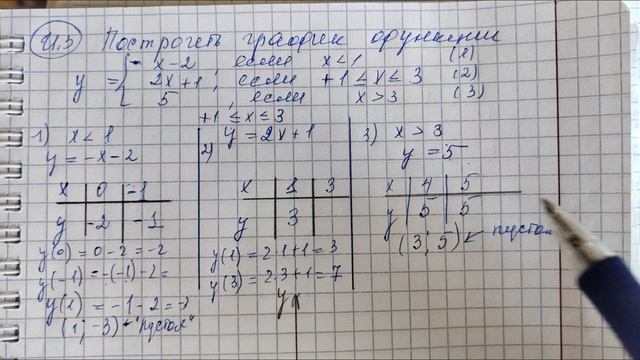 И.3 Построить график функции
y = { -x-2, если x<1 (1)
2x+1, если +1≤x≤3 (2)
5, если x>3 (3)
1) x<1
y=-x-2
x 0 -1
y -2 -1
y(0)=0-2=-2
y(-1)=-(-1)-2=
y(1)=-1-2=-3
(1;-3) ← "пустая"
+1≤x≤3
2) y=2x+1
x 1 3
y 3
y(1)=2·1+1=3
y(3)=2·3+1=7
y
3) x>3
y=5
x 4 5
y 5 5
(3;5) ← пустая